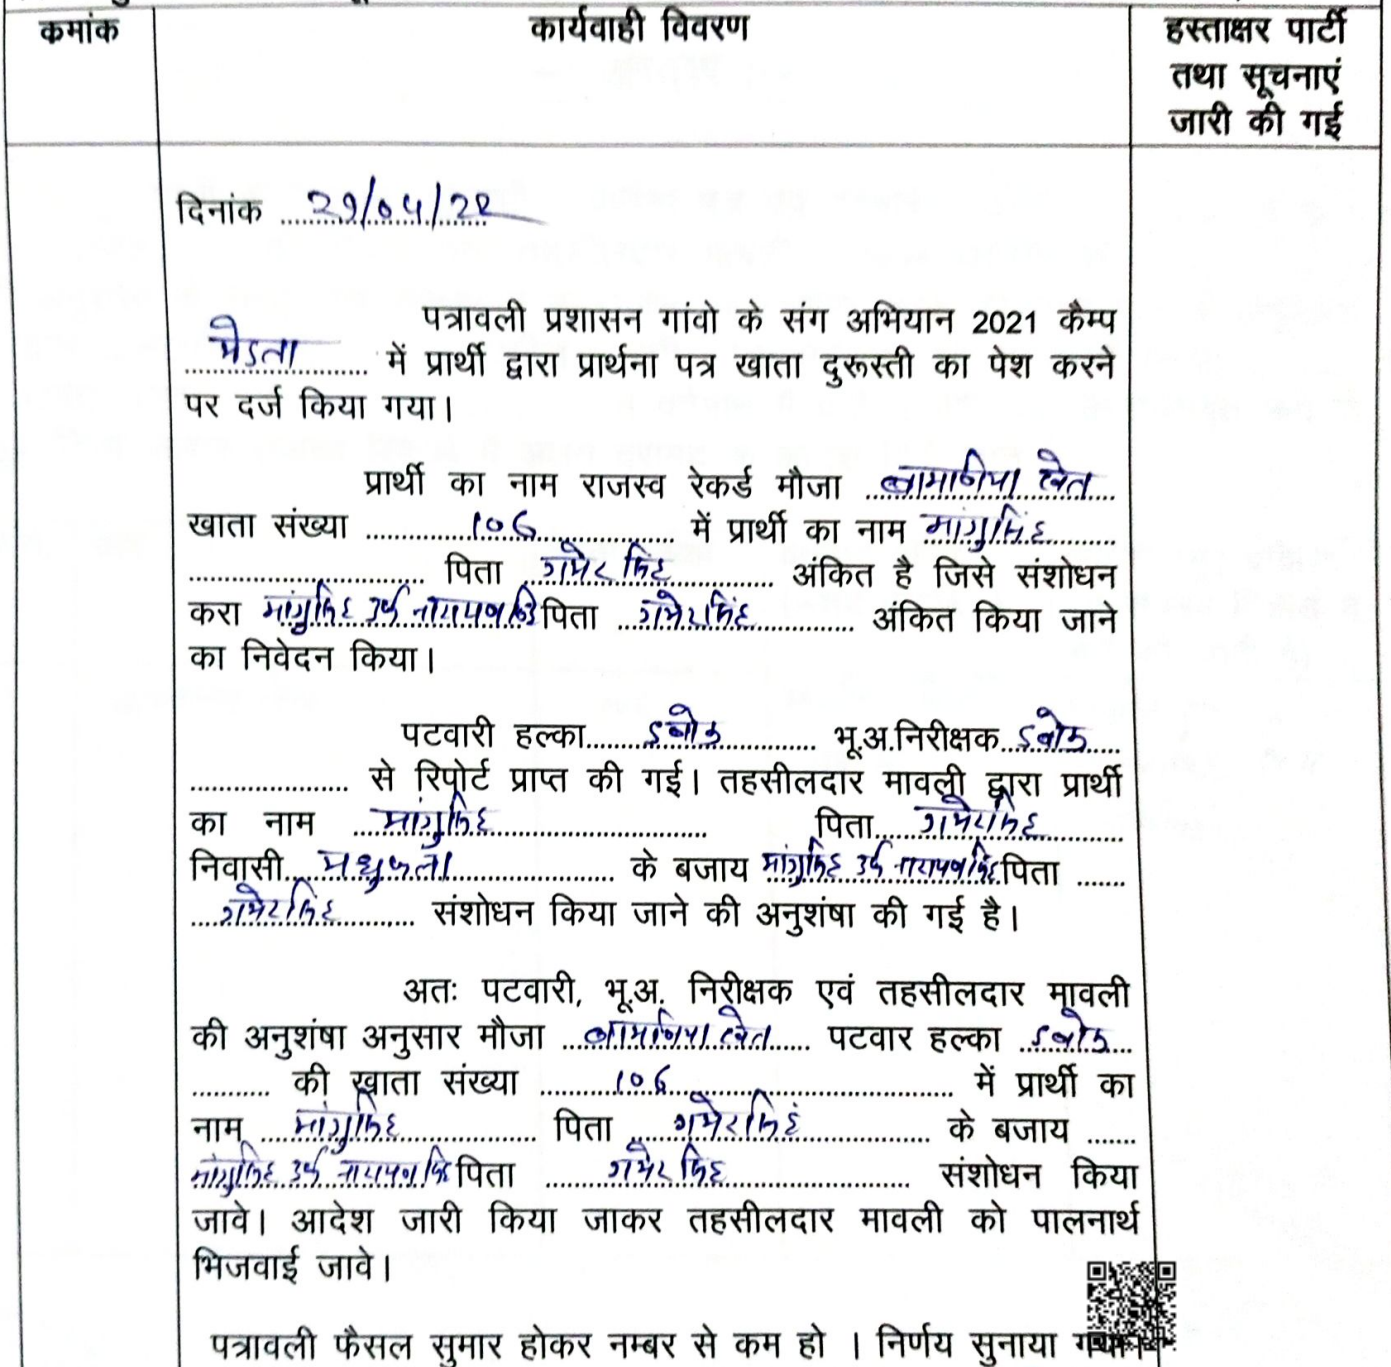 कमांक कार्यवाही विवरण हस्ताक्षर पार्टी
तथा सूचनाएं
जारी की गई
दिनांक 29/04/22
पत्रावली प्रशासन गांवो के संग अभियान 2021 कैम्प
मेडता में प्रार्थी द्वारा प्रार्थना पत्र खाता दुरूस्ती का पेश करने
पर दर्ज किया गया।
प्रार्थी का नाम राजस्व रेकर्ड मौजा बामणिया खेत
खाता संख्या 106 में प्रार्थी का नाम मांगुसिंह
पिता गमेरसिंह अंकित है जिसे संशोधन
करा मांगुसिंह उर्फ नारायणसिंह पिता गमेरसिंह अंकित किया जाने
का निवेदन किया।
पटवारी हल्का डबोक भू.अ.निरीक्षक डबोक
से रिपोर्ट प्राप्त की गई। तहसीलदार मावली द्वारा प्रार्थी
का नाम मांगुसिंह पिता गमेरसिंह
निवासी के बजाय मांगुसिंह उर्फ नारायणसिंह पिता
गमेरसिंह संशोधन किया जाने की अनुशंषा की गई है।
अतः पटवारी, भू.अ. निरीक्षक एवं तहसीलदार मावली
की अनुशंषा अनुसार मौजा बामणिया खेत पटवार हल्का डबोक
की खाता संख्या 106 में प्रार्थी का
नाम मांगुसिंह पिता गमेरसिंह के बजाय
मांगुसिंह उर्फ नारायणसिंह पिता गमेरसिंह संशोधन किया
जावे। आदेश जारी किया जाकर तहसीलदार मावली को पालनार्थ
भिजवाई जावे।
पत्रावली फैसल सुमार होकर नम्बर से कम हो । निर्णय सुनाया